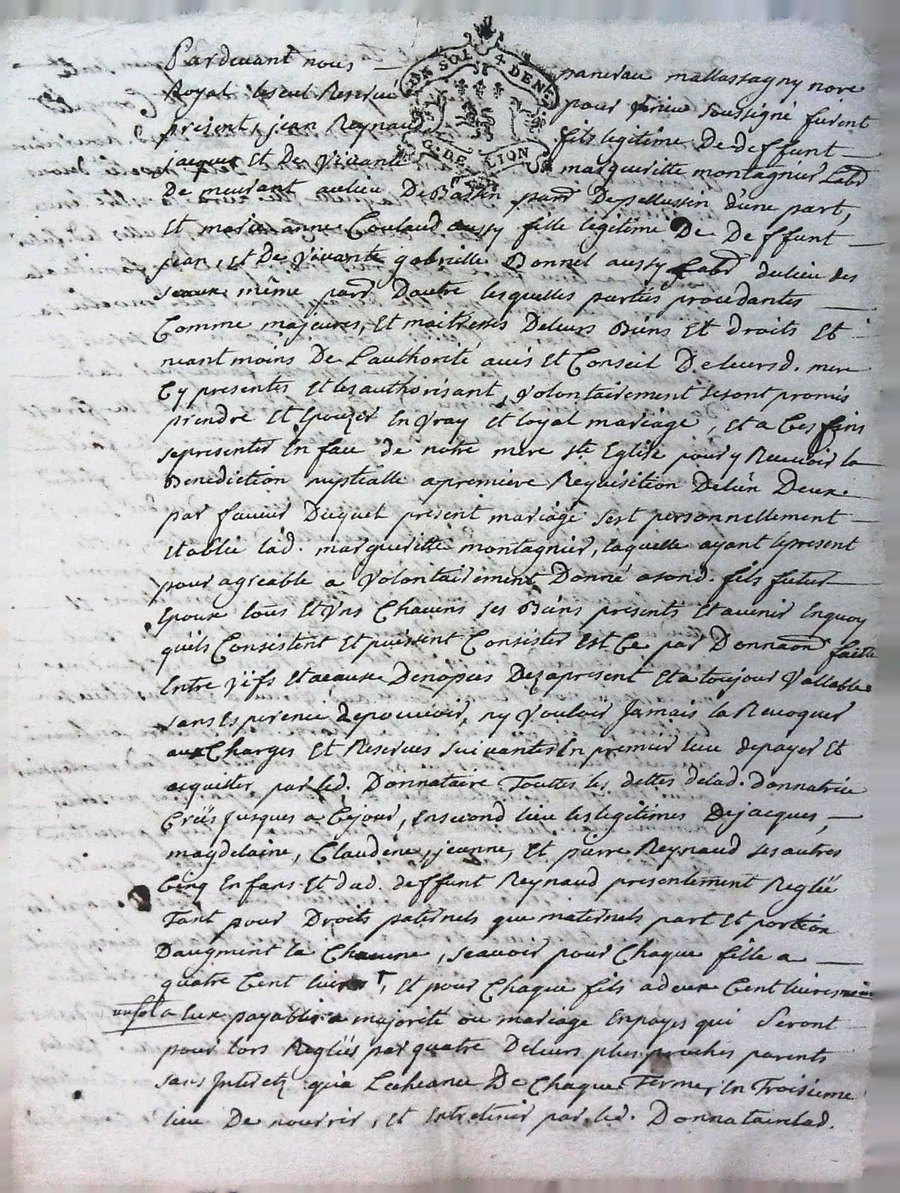 Pardevant nous panerau mallassagny no.re
Royal Reservé pour soussigné furent
présents, jean Reynaud fils legitime De deffunt
jacques Et De vivante margueritte montagnier Labr
De meurant au lieu De par.d De pellussin d'une part,
Et marie anne Coulaud aussy fille legitime De Deffunt
jean, et De vivante gabrielle Bonnel aussy Labr du lieu des
seaux même par.d D'autre lesquelles parties procedantes
Comme majeures, Et maitresses De leurs Biens Et droits Et
neant moins De L'authorité avis Et Conseil De leurs d. mere
Cy presentes Et les authorisant, volontairement se sont promis
prendre Et Epouzer En vray Et loyal mariage, Et a Ces fins
se presenter En face de notre mere Ste Eglise pour y Recevoir la
Benediction nuptialle a premiere Requisition De lún Deux.
par faveur Duquel present mariage sest personnellement
Etablie lad. margueritte montagnier, laquelle ayant le present
pour agreable a volontairement Donné a sond. fils futur
Epoux tous Et Uns Chacuns ses Biens presents Et avenir En quoy
qu'ils Consistent Et puissent Consister est Ce par Donnaon faitte
Entre vifs Et a Cause De nopces Dez a present Et a toujour vallable
sans Esperence De pouvoir, ny vouloir jamais la Revoquer
aux Charges Et Reserves suivantes En premier lieu de payer Et
acquitter, par led. Donnataire Touttes les dettes de lad. donnatrice
Créés jusques a Cejour, En second lieu les legitimes De jacques,
magdelaine, Claudine, jeanne, Et pierre Reynaud ses autres
Cinq Enfans Et dud. deffunt Reynaud presentement Reglée
Tant pour Droits paternels que maternels part Et portion
D'augment la Chacune, scavoir pour Chaque fille a
quatre Cent livres, Et pour Chaque fils a deux Cent livres
a Eux payables a majorité ou mariage En payes qui seront
pour lors Reglées par quatre De leurs plus proches parents
sans Interetz qu'a L'echeance De Chaque Terme, En Troisieme
lieu De nourrir, Et Entretenir par led. Donnataire lad.